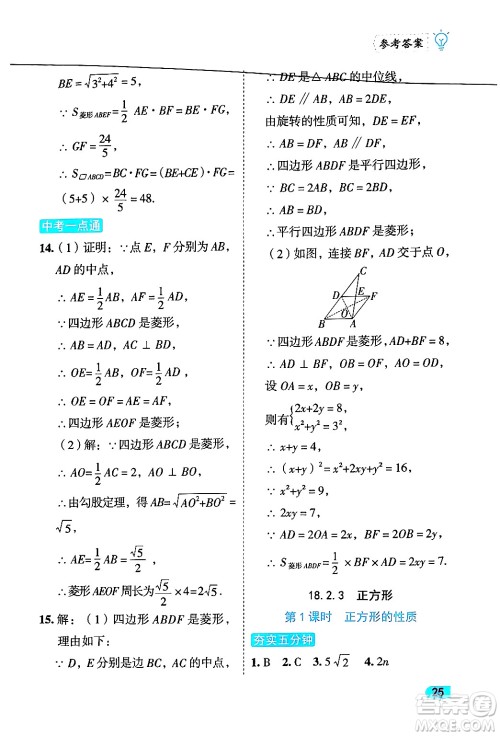 参考答案
BE=√(3²+4²)=5,
∵ S菱形ABEF=1/2 AE·BF=BE·FG,
∴ GF=24/5.
∴ S▱ABCD=BC·FG=(BE+EC)·FG=
(5+5)×24/5=48.
中考一点通
14.(1)证明:∵点E,F分别为AB,
AD的中点,
∴ AE=1/2 AB,AF=1/2 AD.
∵四边形ABCD是菱形,
∴ AD⊥BD.
∴ OE=1/2 AB,OF=1/2 AD.
∴ OE=OF=AE=AF.
∴四边形AEOF是菱形.
(2)解:∵四边形ABCD是菱形,
∴ AO=1/2 AC=2,AO⊥BO.
∴由勾股定理,得AB=√(AO²+BO²)=
√5.
∴ AE=1/2 AB=√5/2.
∴菱形AEOF周长为√5/2×4=2√5.
15.解:(1)四边形ABDF是菱形.
理由如下:
∵ D,E分别是BC,AC的中点,
∴ DE是△ABC的中位线.
∴ DE∥AB,DE=1/2 AB.
由旋转的性质可知,DE=EF.
∴四边形ABDF是平行四边形.
∵ BC=2AB,BD=DC,
∴ BA=BD.
∴平行四边形ABDF是菱形.
(2)如图,连接BF,AD交于点O.
C
D E F
O
B A
∵四边形ABDF是菱形,AD+BF=8,
∴ AD⊥BF,OB=OF,AO=OD.
设OA=x,OB=y,
则有{2x+2y=8,
x²+y²=3²,
∴ x+y=4.
∴(x+y)²=x²+2xy+y²=16.
∴ 2xy=7.
∵ AD=2OA=2x,BF=2OB=2y,
∴ S菱形ABDF=1/2×BF×AD=2xy=7.
18.2.3 正方形
第1课时 正方形的性质
夯实五分钟
1.B 2.C 3.5√2 4.2n
25